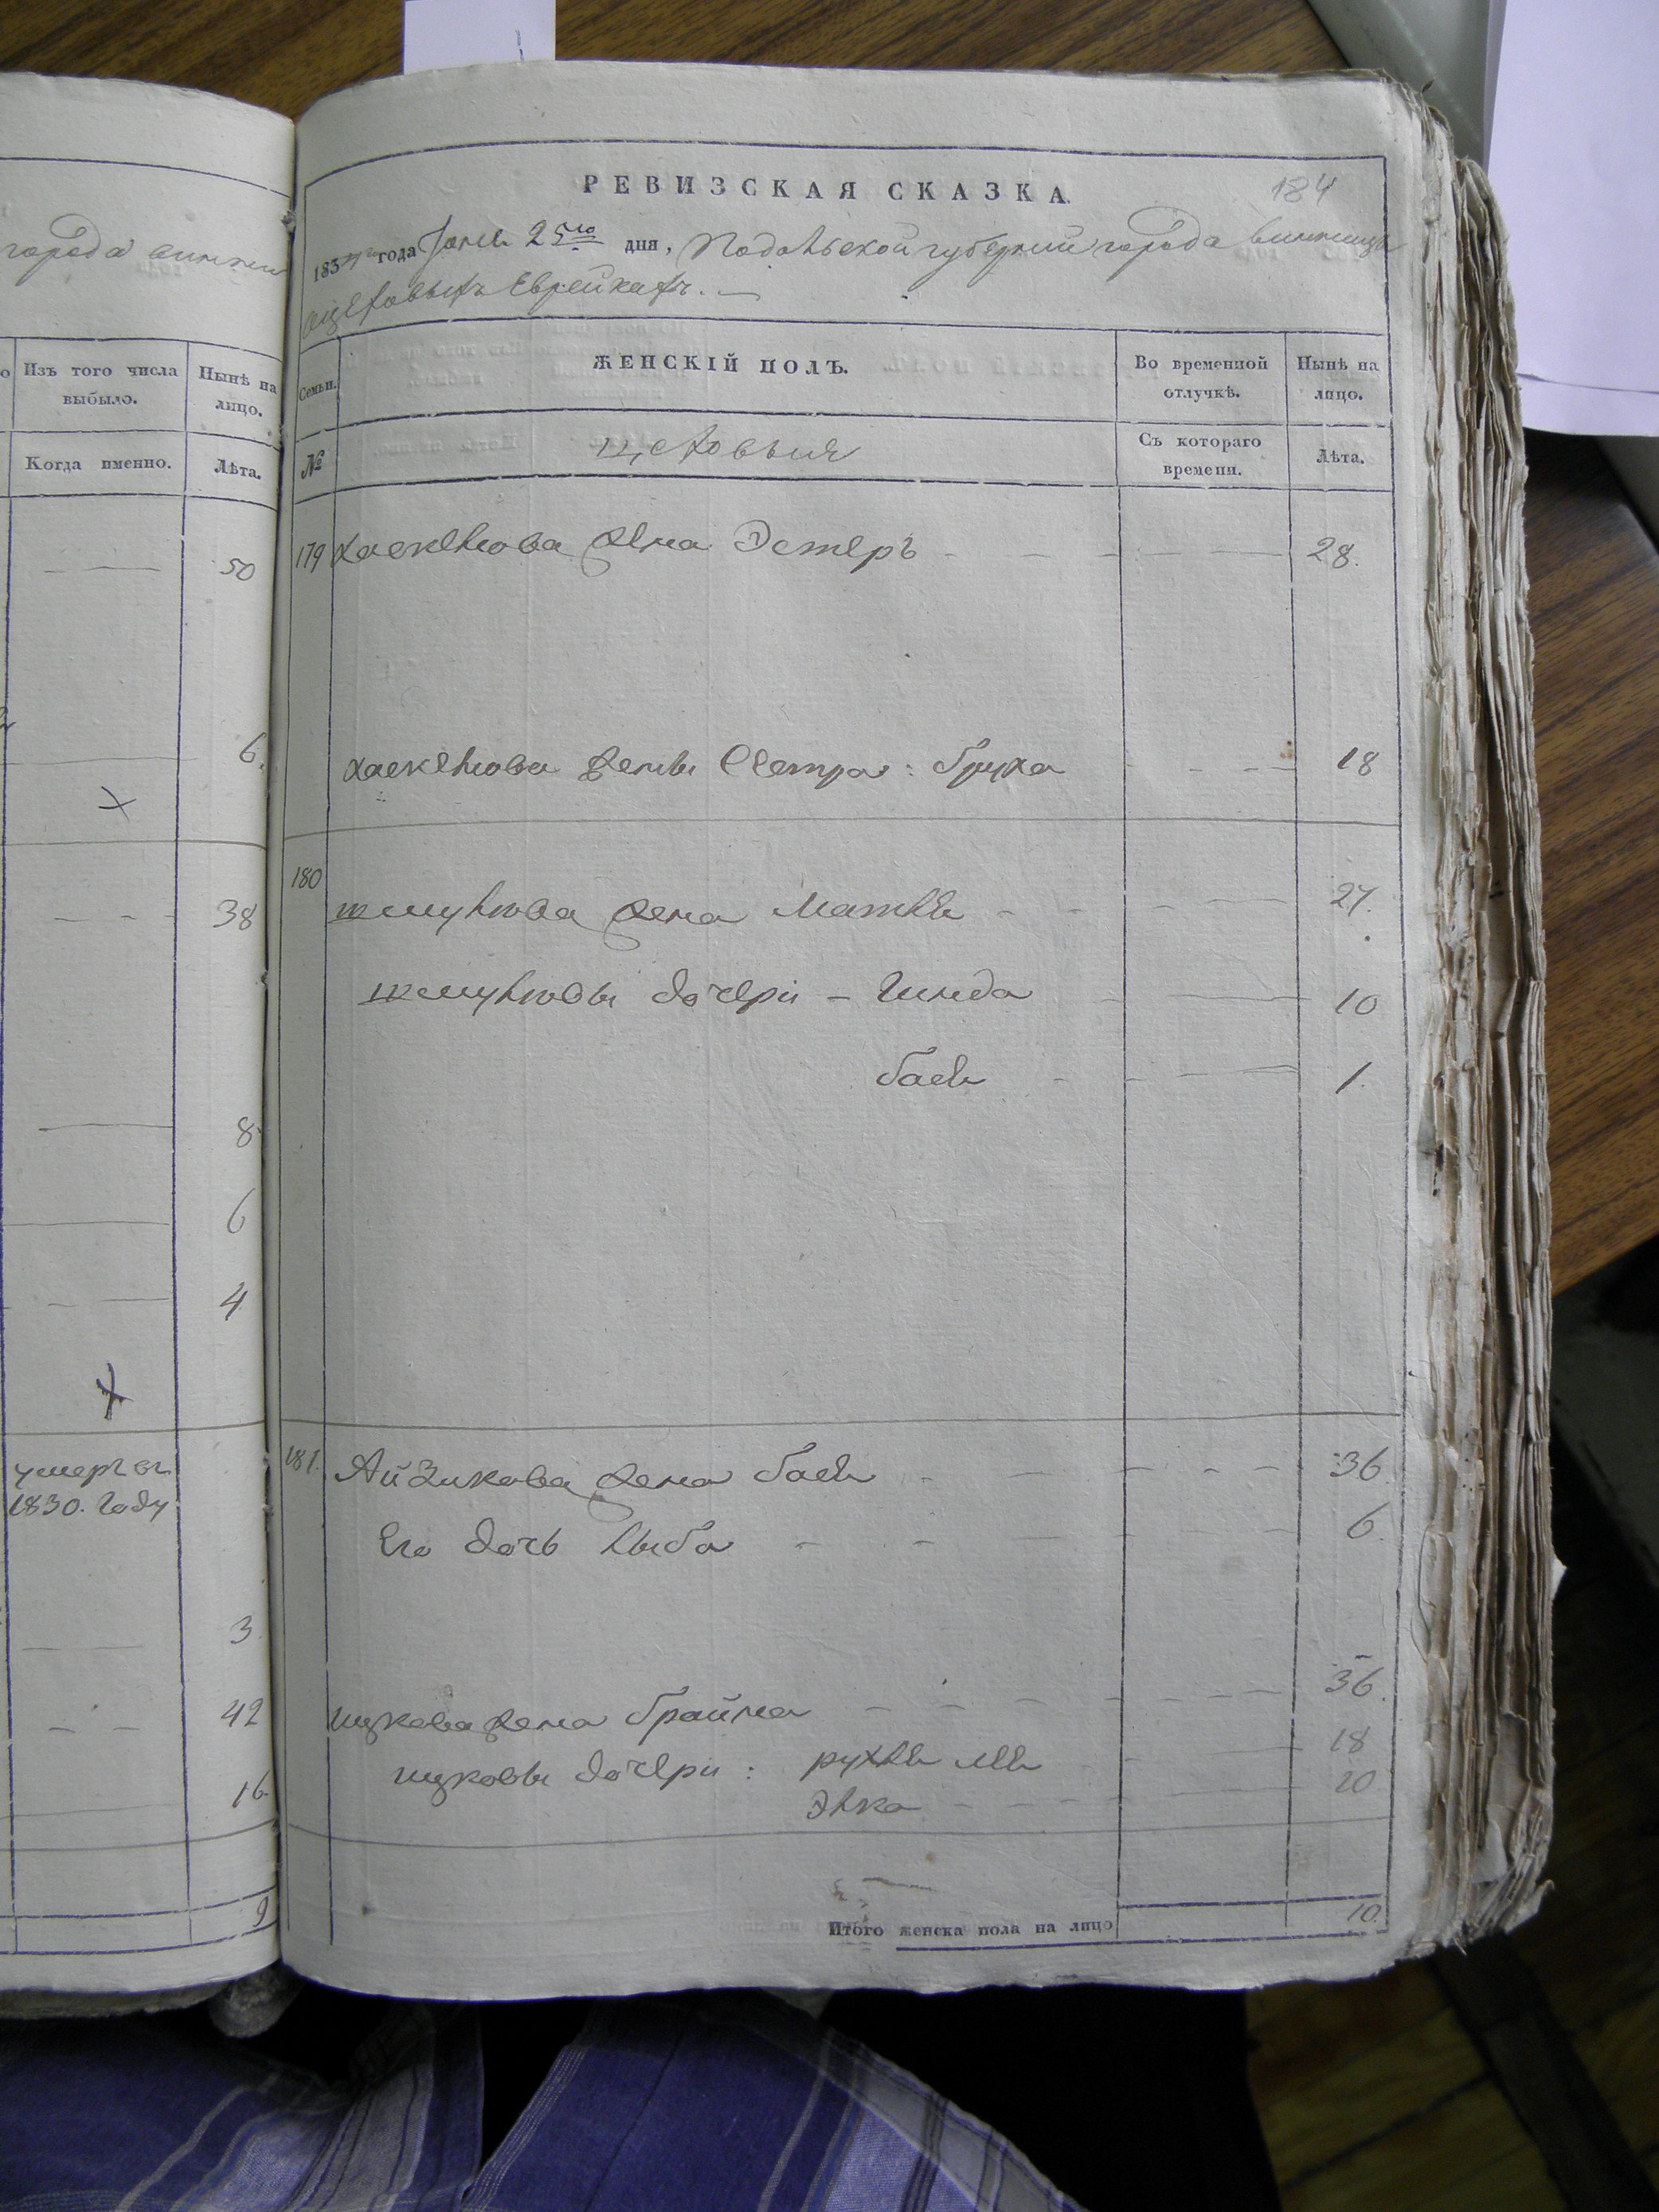 города винни
Изъ того числа
выбыло.
Нынѣ на
лицо.
Когда именно.
Лѣта.
50
6.
38
8
6
4
умеръ въ
1830. году
3
42
16.
9
РЕВИЗСКАЯ СКАЗКА.
184
183 года 25го дня, Подольской губерніи города винницы
Еврейкахъ.
Семьи.
ЖЕНСКІЙ ПОЛЪ.
Во временной
отлучкѣ.
Нынѣ на
лицо.
№
цеховыя
Съ котораго
времени.
Лѣта.
179 хаскелiова жена Эстеръ 28.
хаскелiова жены Сестра: бруха 18
180
шмулiова жена Матля 27.
шмулiовы дочери - Гинда 10
бася 1.
181. Айзикова жена бася 36
Его дочь Либа 6.
ицкова жена брайна 36.
ицковы дочери: рухля лея 18
Элка 20
Итого женска пола на лицо 10.